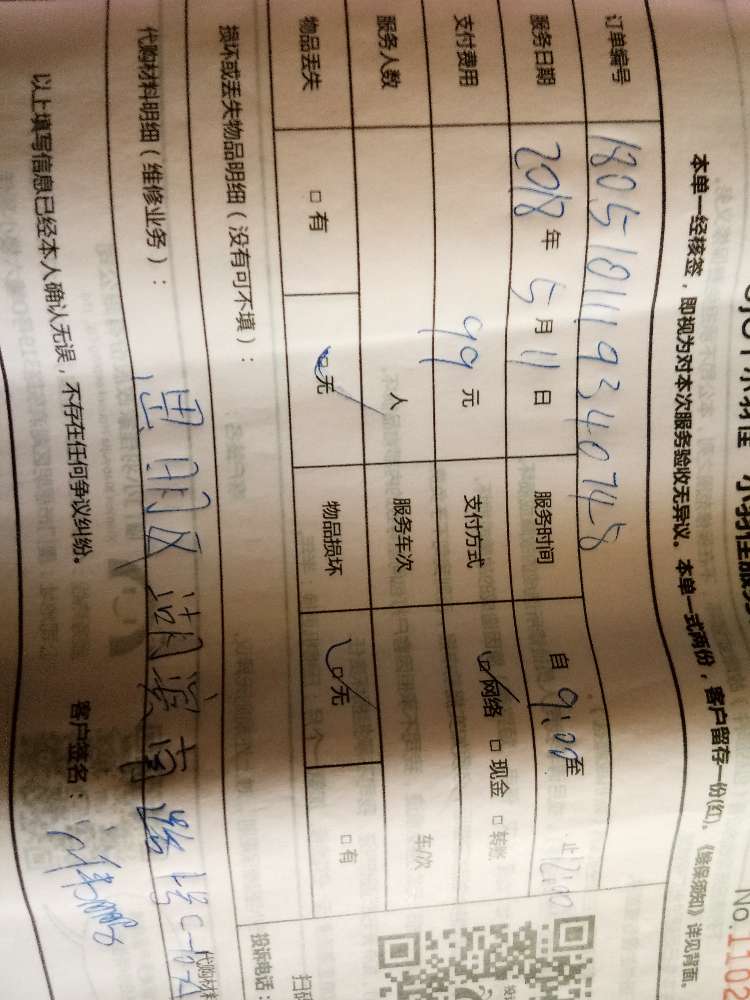 小羽佳
No.1102
本单一经核签，即视为对本次服务验收无异议。本单一式两份，客户留存一份(红)。《维保须知》详见背面。
订单编号 180510111934074８
服务日期 2018年5月11日 服务时间 自9:00至 12:00止
支付费用 99元 支付方式 □网络 □现金 □转账
服务人数 人 服务车次 车/次
物品丢失 □有 □无 物品损坏 □无 □有
损坏或丢失物品明细（没有可不填）：
代购材料明细（维修业务）： 思明区湖滨南路 代购材料
以上填写信息已经本人确认无误，不存在任何争议纠纷。 客户签名：
投诉电话：
扫码